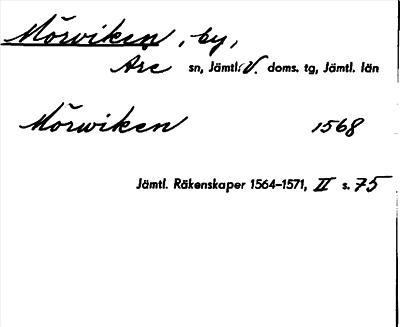 Mörviken, by,
Åre sn, Jämtl. V. doms. tg, Jämtl. län
Mörwiken 1568
Jämtl. Räkenskaper 1564–1571, II s. 75